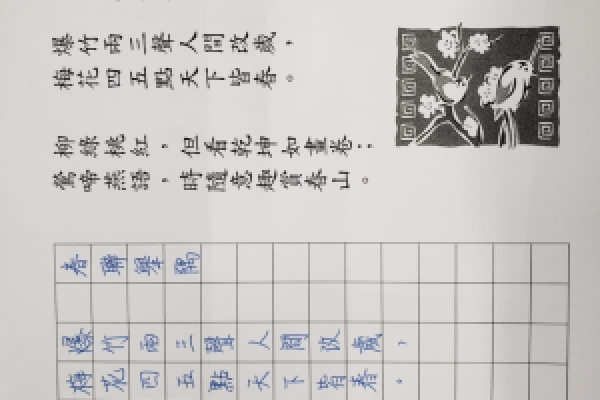 爆竹兩三聲人間改歲，
梅花四五點天下皆春。
柳綠桃紅，但看乾坤如畫卷；
鶯啼燕語，時隨意趣賞春山。
春聯舉隅
爆竹兩三聲人間改歲，
梅花四五點天下皆春。